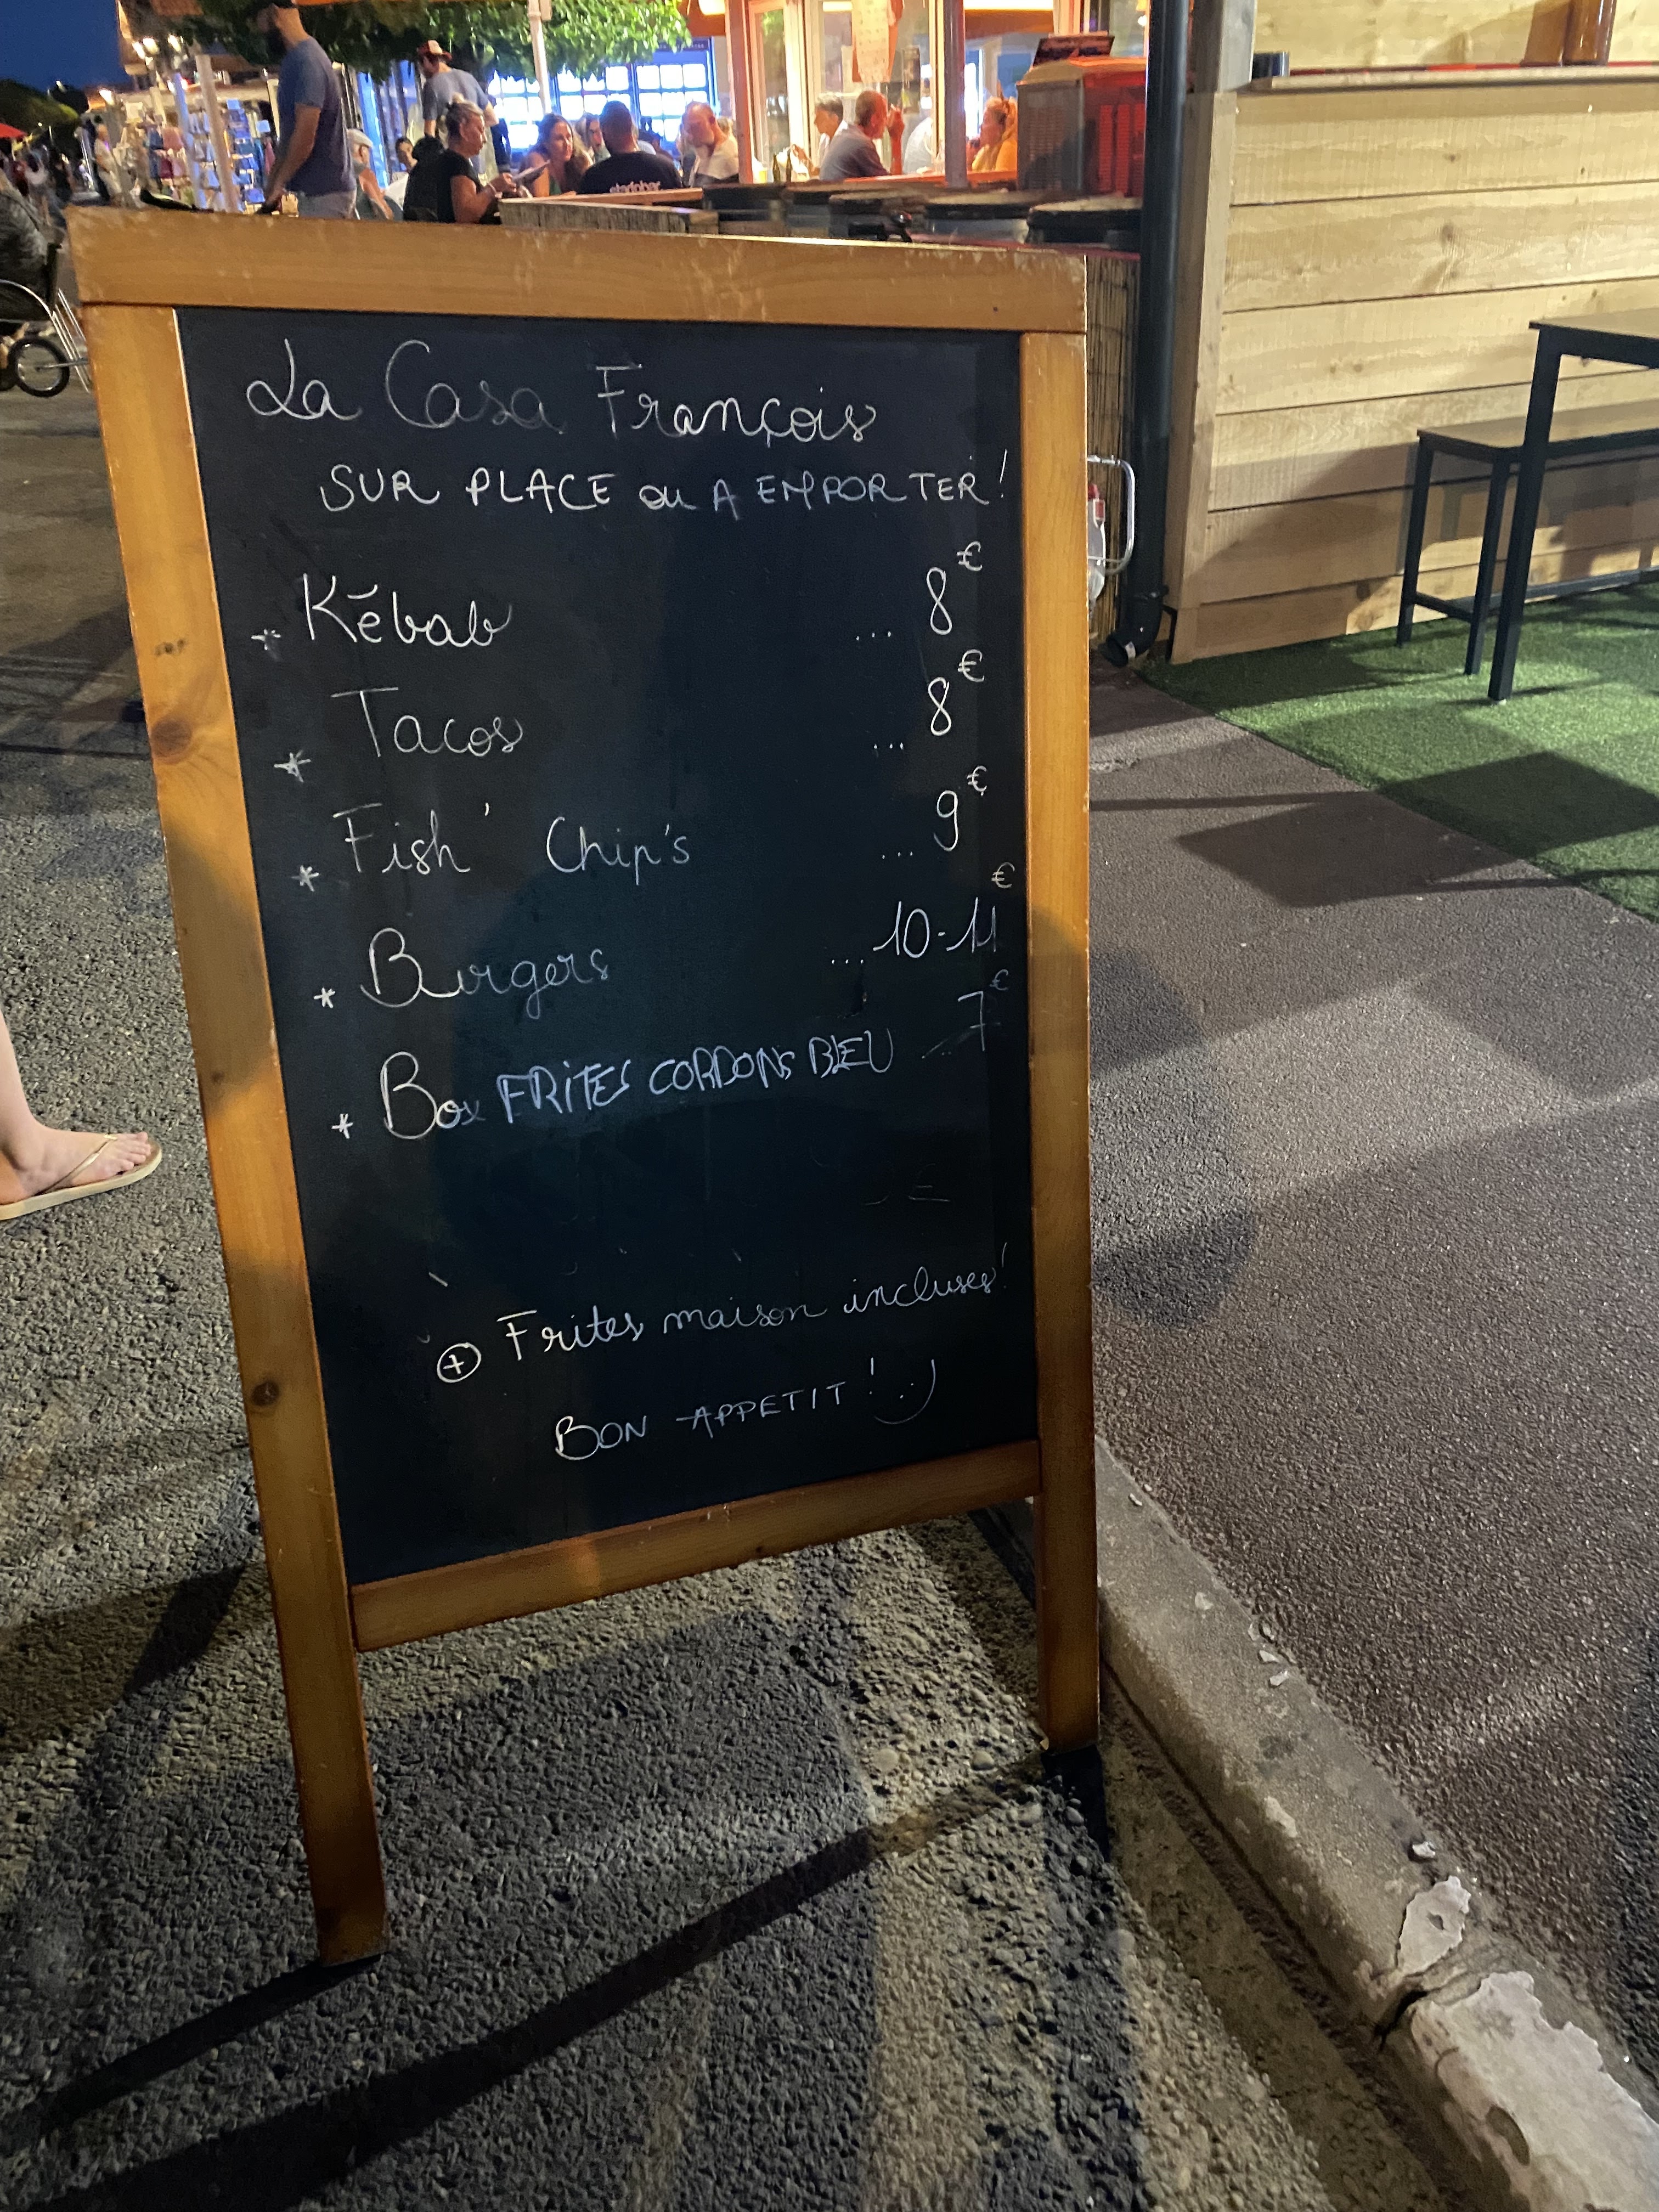 La Casa François
SUR PLACE ou A EMPORTER!
* Kébab ... 8€
* Tacos ... 8€
* Fish' Chip's ... 9€
* Burgers ... 10-11€
* Box FRITES CORDONS BLEU ... 7€
+ Frites maison incluses!
BON APPETIT! :)